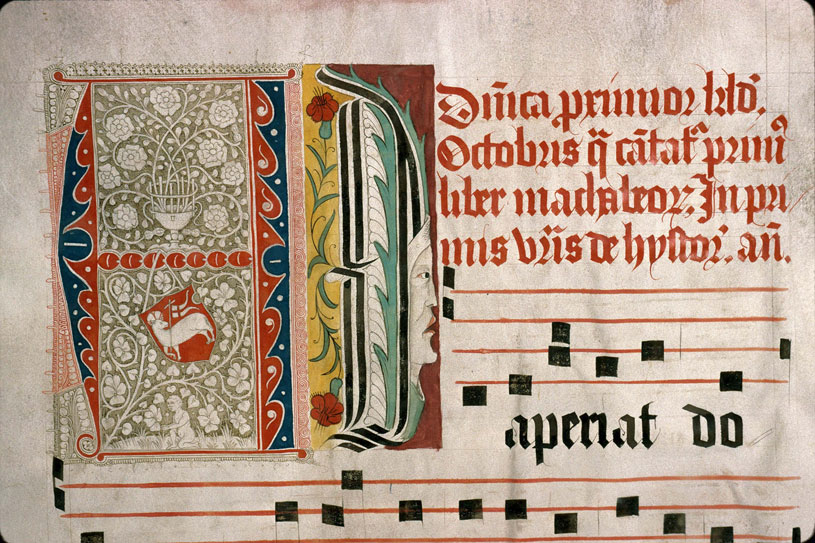 Dñica primuor kld.
Octobris q̃ cãtat᷑ primꝰ
liber machabeoꝝ. In pri
mis vr̃is de hystor. añ.
A
aperiat do